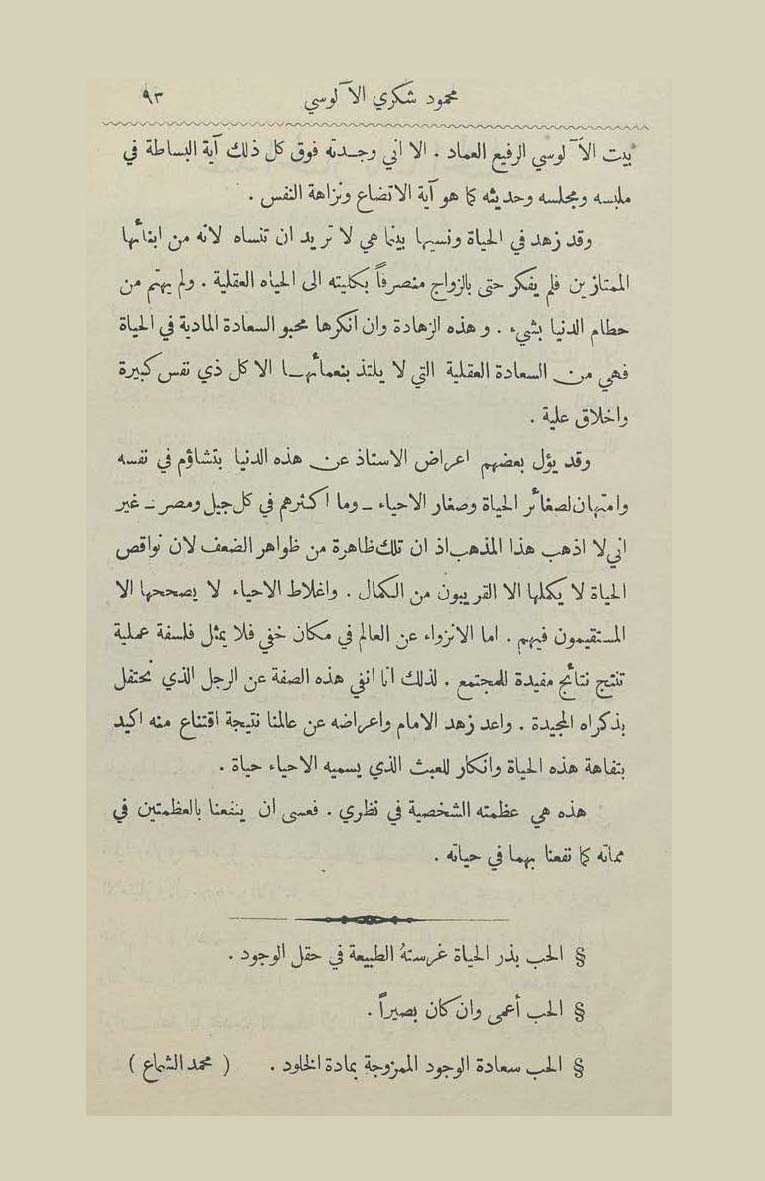 محمود شكري الآلوسي ٩٣
بيت الآلوسي الرفيع العماد . الا اني وجدته فوق كل ذلك آية البساطة في
ملبسه ومجلسه وحديثه كما هو آية الاتضاع ونزاهة النفس .
وقد زهد في الحياة ونسيها بينما هي لا تريد ان تنساه لانه من ابنائها
الممتازين فلم يفكر حتى بالزواج منصرفاً بكليته الى الحياه العقلية . ولم يهتم من
حطام الدنيا بشيء . وهذه الزهادة وان انكرها محبو السعادة المادية في الحياة
فهي من السعادة العقلية التي لا يلتذ بنعمائها الا كل ذي نفس كبيرة
واخلاق علية .
وقد يؤل بعضهم اعراض الاستاذ عن هذه الدنيا بتشاؤم في نفسه
وامتهان لصغائر الحياة وصغار الاحياء – وما اكثرهم في كل جيل ومصر – غير
اني لا اذهب هذا المذهب اذ ان تلك ظاهرة من ظواهر الضعف لان نواقص
الحياة لا يكملها الا القريبون من الكمال . واغلاط الاحياء لا يصححها الا
المستقيمون فيهم . اما الانزواء عن العالم في مكان خفي فلا يمثل فلسفة عملية
تنتج نتائج مفيدة للمجتمع . لذلك انا انفي هذه الصفة عن الرجل الذي نحتفل
بذكراه المجيدة . واعد زهد الامام واعراضه عن عالمنا نتيجة اقتناع منه اكيد
بتفاهة هذه الحياة وانكار للعبث الذي يسميه الاحياء حياة .
هذه هي عظمته الشخصية في نظري . فعسى ان ينفعنا بالعظمتين في
مماته كما نفعنا بهما في حياته .
§ الحب بذر الحياة غرستهُ الطبيعة في حقل الوجود .
§ الحب أعمى وان كان بصيراً .
§ الحب سعادة الوجود الممزوجة بمادة الخلود . ( محمد الشماع )